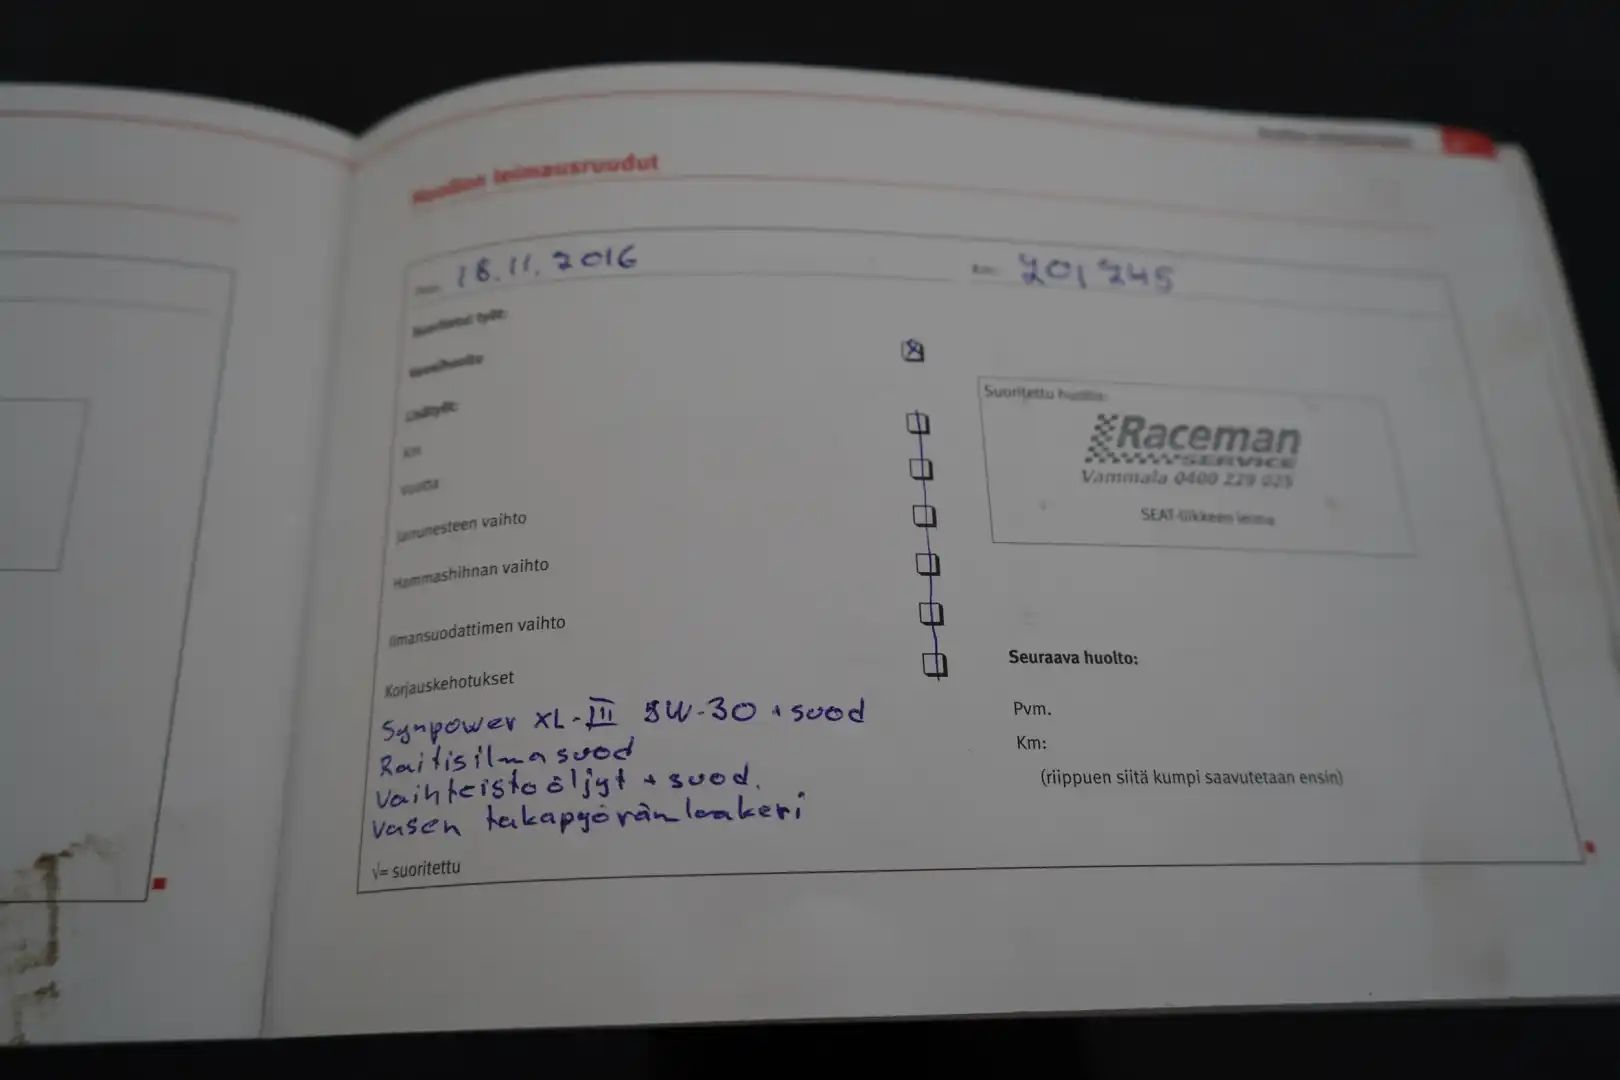 Huollon leimausruudut
Pvm. 18.11.2016
Km: 201 245
Suoritetut työt:
Vuosihuolto
Lisätyöt:
Km
Vuotta
Jarrunesteen vaihto
Hammashihnan vaihto
Ilmansuodattimen vaihto
Korjauskehotukset
Synpower XL-III 5W-30 + suod
Raitisilmasuod
Vaihteistoöljyt + suod.
Vasen takapyöränlaakeri
√= suoritettu
Suoritettu huolto:
Raceman
SERVICE
Vammala 0400 229 025
SEAT-liikkeen leima
Seuraava huolto:
Pvm.
Km:
(riippuen siitä kumpi saavutetaan ensin)